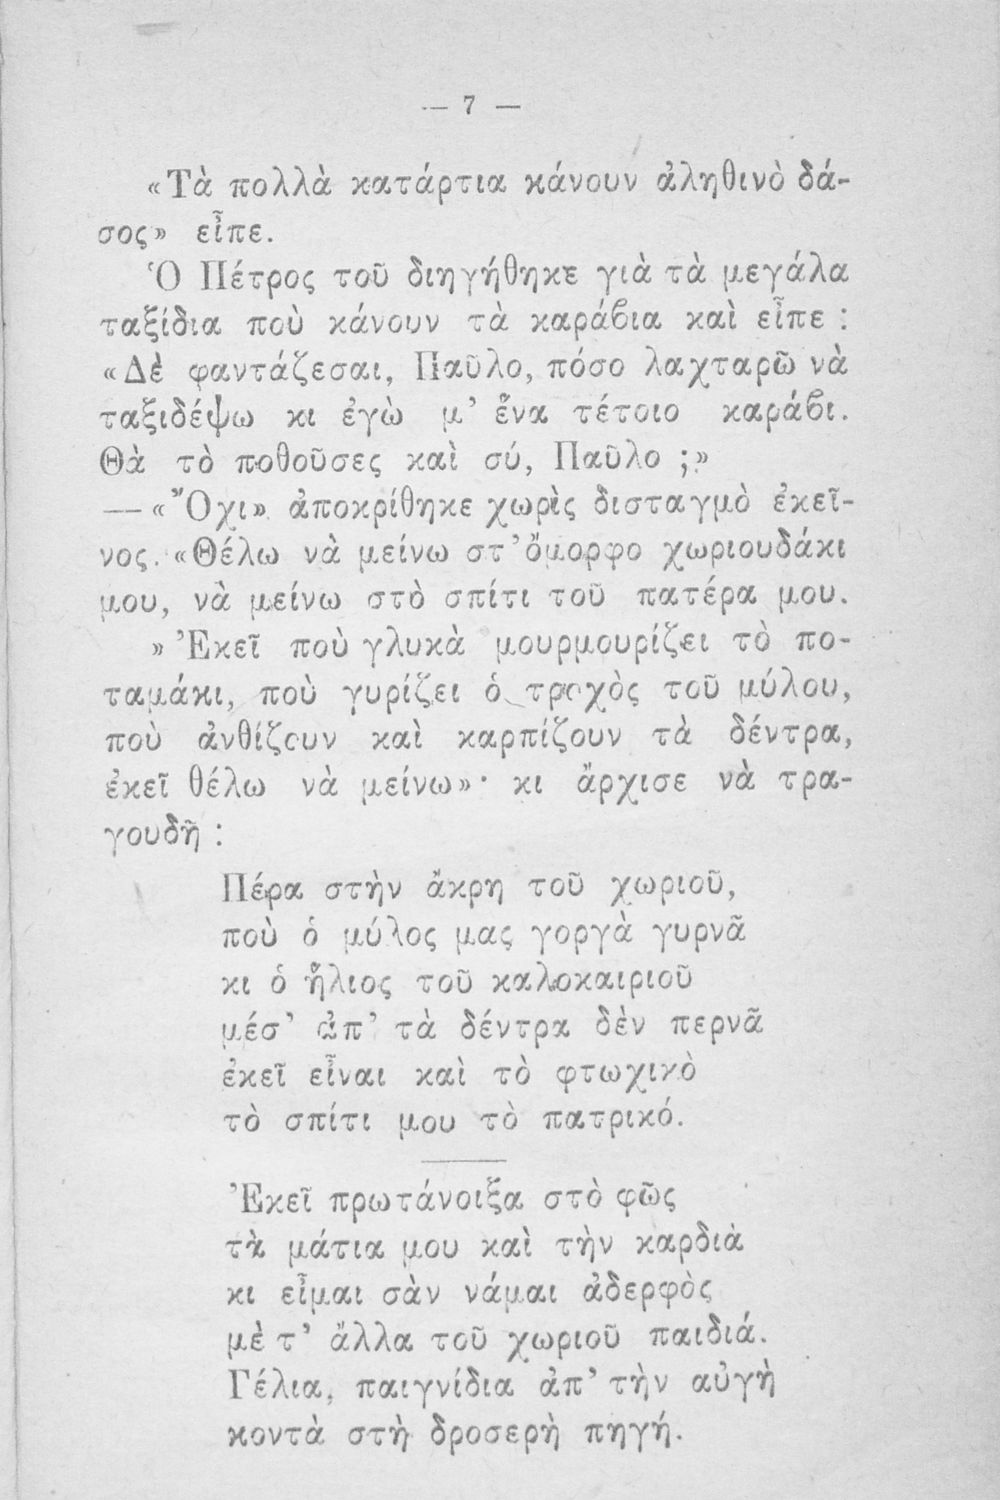 — 7 —
«Τὰ πολλὰ κατάρτια κάνουν ἀληθινὸ δά-
σος» εἶπε.
Ὁ Πέτρος τοῦ διηγήθηκε γιὰ τὰ μεγάλα
ταξίδια ποὺ κάνουν τὰ καράβια καὶ εἶπε :
«Δὲ φαντάζεσαι, Παῦλο, πόσο λαχταρῶ νὰ
ταξιδέψω κι ἐγὼ μ’ ἕνα τέτοιο καράβι.
Θὰ τὸ ποθοῦσες καὶ σύ, Παῦλο ;»
—«Ὄχι» ἀποκρίθηκε χωρὶς δισταγμὸ ἐκεῖ-
νος. «Θέλω νὰ μείνω στ’ ὄμορφο χωριουδάκι
μου, νὰ μείνω στὸ σπίτι τοῦ πατέρα μου.
» Ἐκεῖ ποὺ γλυκὰ μουρμουρίζει τὸ πο-
ταμάκι, ποὺ γυρίζει ὁ τροχὸς τοῦ μύλου,
ποὺ ἀνθίζουν καὶ καρπίζουν τὰ δέντρα,
ἐκεῖ θέλω νὰ μείνω»· κι ἄρχισε νὰ τρα-
γουδῇ :
Πέρα στὴν ἄκρη τοῦ χωριοῦ,
ποὺ ὁ μύλος μας γοργὰ γυρνᾶ
κι ὁ ἥλιος τοῦ καλοκαιριοῦ
μέσ’ ἀπ’ τὰ δέντρα δὲν περνᾶ
ἐκεῖ εἶναι καὶ τὸ φτωχικὸ
τὸ σπίτι μου τὸ πατρικό.
Ἐκεῖ πρωτάνοιξα στὸ φῶς
τὰ μάτια μου καὶ τὴν καρδιὰ
κι εἶμαι σὰν νάμαι ἀδερφὸς
μὲ τ’ ἄλλα τοῦ χωριοῦ παιδιά.
Γέλια, παιγνίδια ἀπ’ τὴν αὐγὴ
κοντὰ στὴ δροσερὴ πηγή.